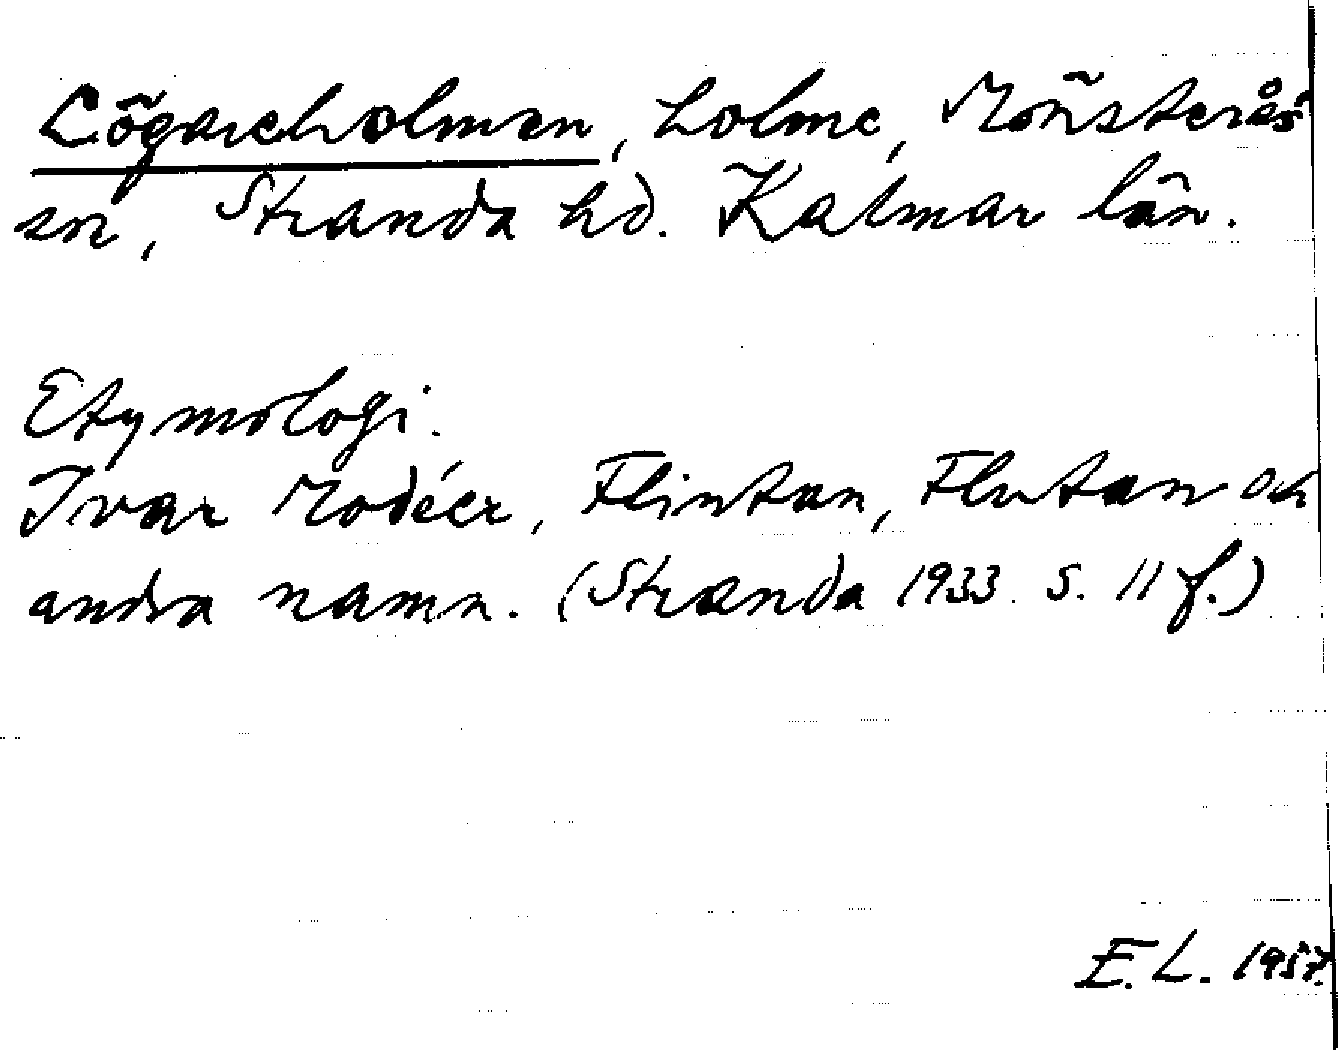 Lögareholmen, holme, Mönsterås
sn, Stranda hd. Kalmar län.
Etymologi.
Ivar Modéer, Flintan, Flutan och
andra namn. (Stranda 1933. S. 11 f.)
E. L. 1957.